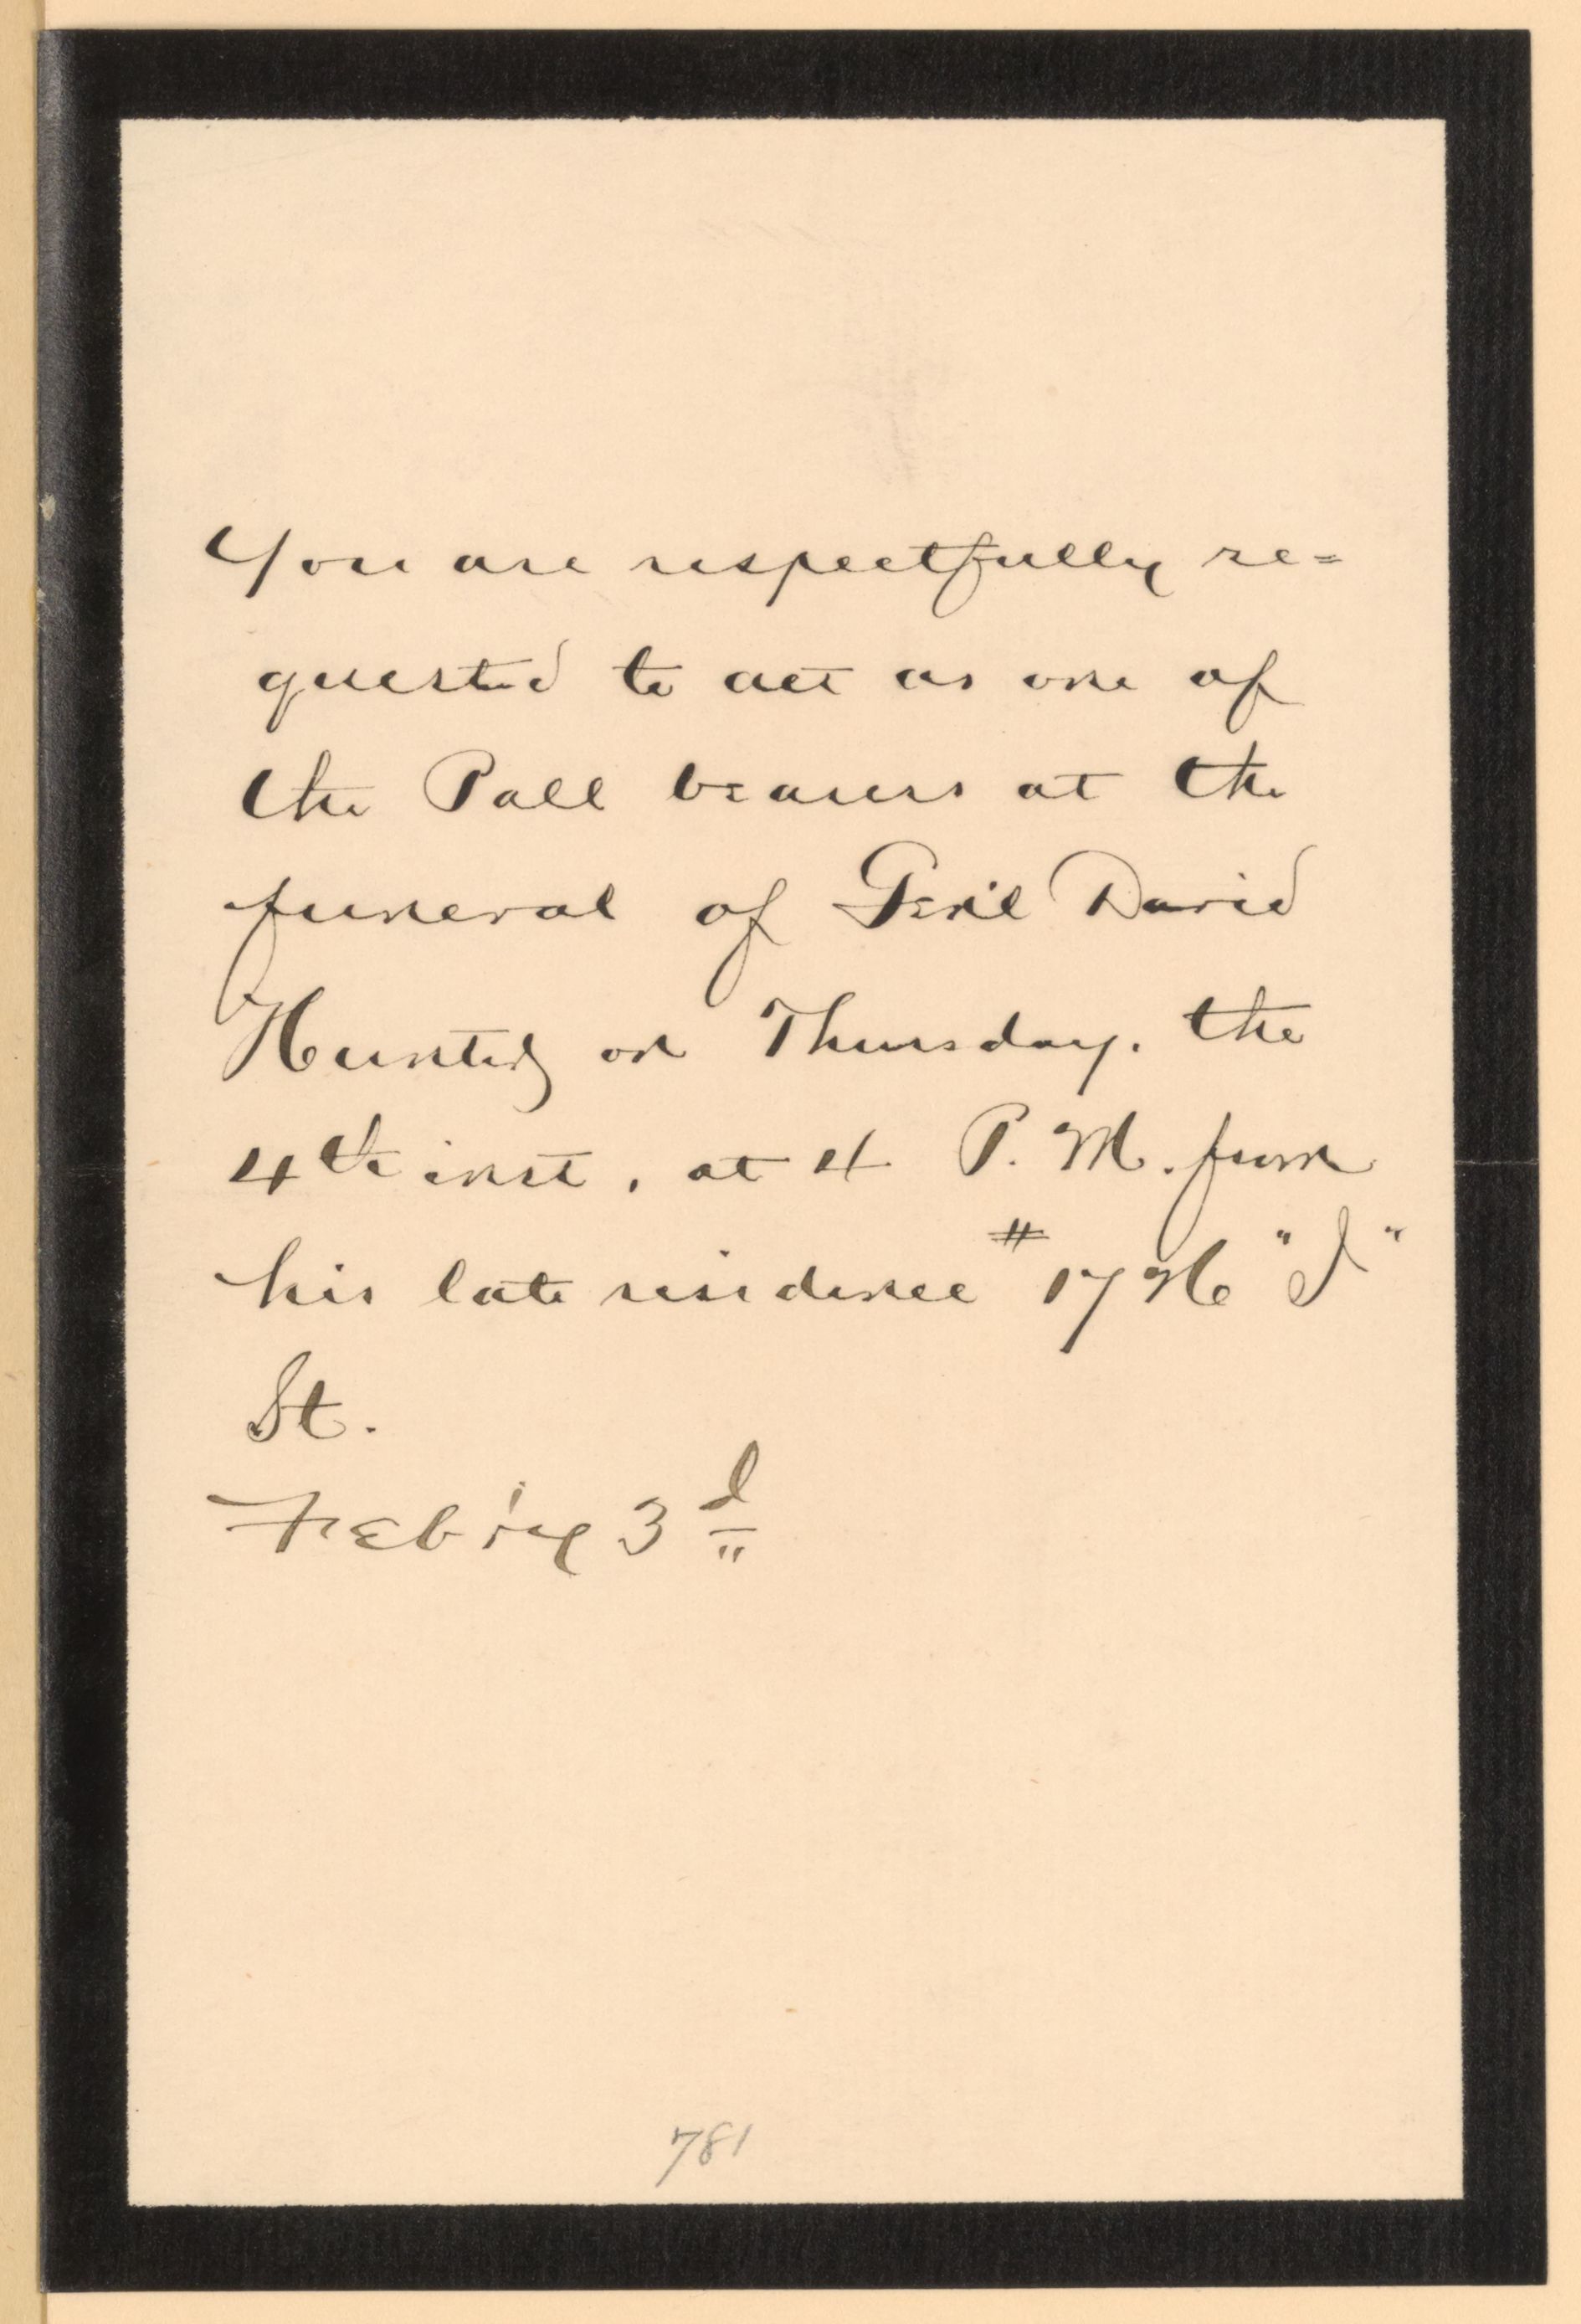 You are respectfully re=
quested to act as one of
the Pall bearers at the
funeral of Gen'l David
Hunter on Thursday. the
4th inst, at 4 P. M. from
his late residence #1726 "I"
St.
Feb'ry 3d
781